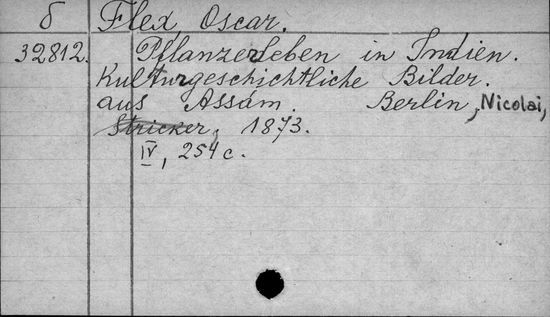 б Flex Oscar.
32812. Pflanzerleben in Indien.
Kulturgeschichtliche Bilder.
aus Assám. Berlin, Nicolai,
Stricker, 1873.
IV, 254 c.